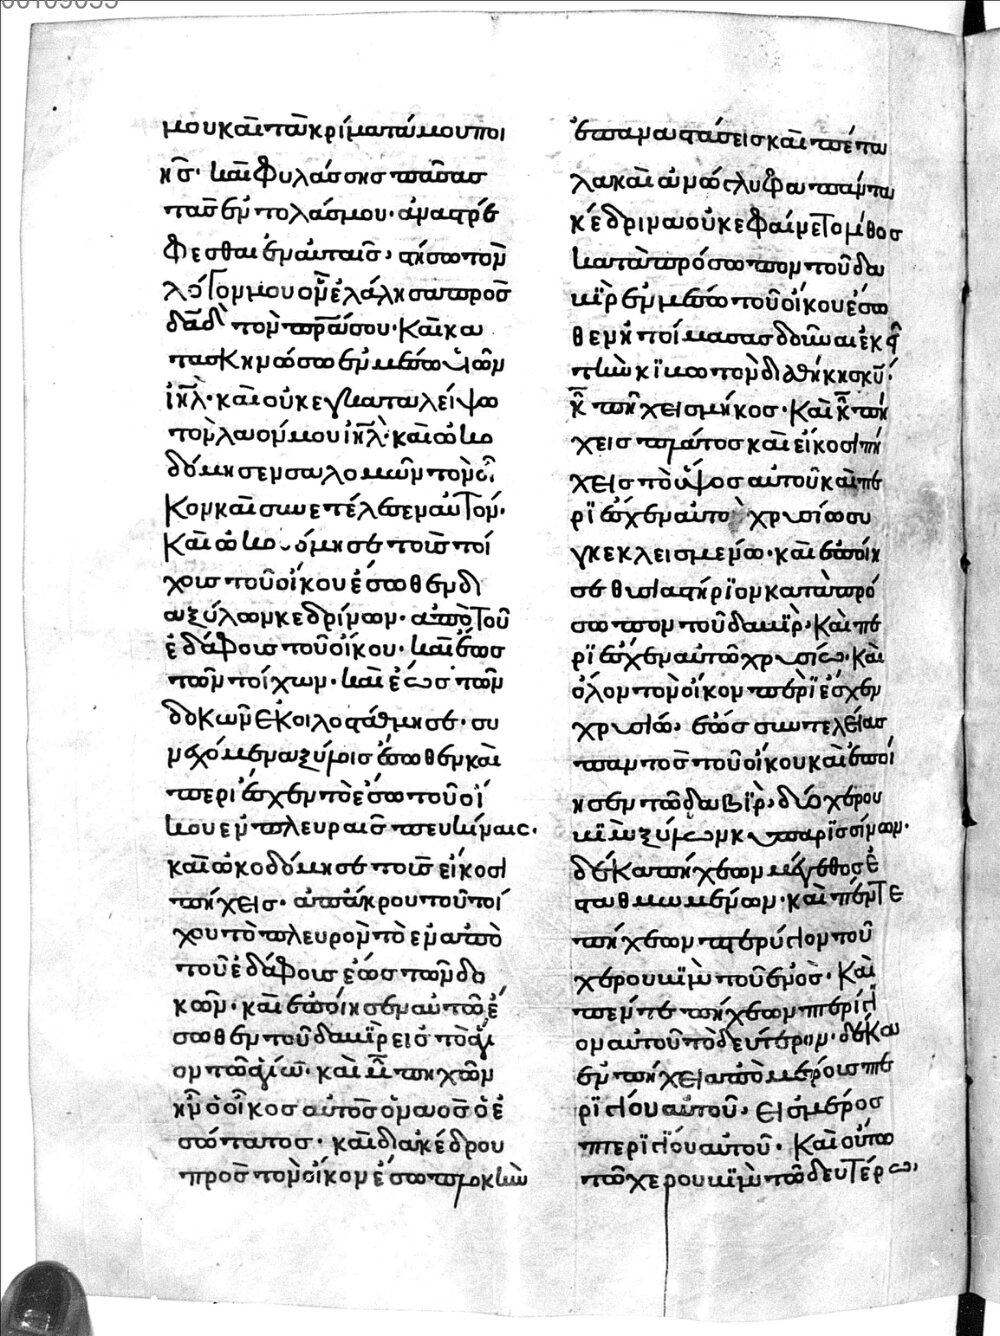 μου καὶ τὰ κρίματά μου ποι
ῇς· καὶ φυλάσσῃς πάσας
τὰς ἐντολάς μου· ἀναστρέ
φεσθαι ἐν αὐταῖς, στήσω τὸν
λόγον μου ὃν ἐλάλησα πρὸς
δᾱδ̄ τὸν πρ̄α σου· Καὶ κα
τασκηνώσω ἐν μέσω υἱῶν
ιη̄λ· καὶ οὐκ ἐγκαταλείψω
τὸν λαόν μου ιη̄λ· καὶ ὠκο
δόμησεν σαλομὼν τὸν οἶ
κον καὶ συνετέλεσεν αὐτόν·
Καὶ ὠκοδόμησε τοὺς τοί
χους τοῦ οἴκου ἔσωθεν δι
α ξύλων κεδρίνων· ἀπὸ τοῦ
ἐδάφους τοῦ οἴκου· καὶ ἕως
τῶν τοίχων· καὶ ἕως τῶν
δοκῶν ἐκοιλοστάθμησε· συ
νεχόμενα ξύλοις ἔσωθεν καὶ
περιέσχεν τὸ ἔσω τοῦ οἴ
κου ἐν πλευραῖς πευκίναις·
καὶ ὠκοδόμησε τοὺς εἴκοσι
πήχεις· ἀπ' ἄκρου τοῦ τοί
χου τὸ πλευρὸν τὸ ἓν ἀπὸ
τοῦ ἐδάφους ἕως τῶν δο
κῶν· καὶ ἐποίησεν αὐτῶ ἔ
σωθεν τοῦ δαβὶρ εἰς τὸ ἅγι
ον τῶ ἁγίω̄· καὶ μ̄ πηχῶν
ἦν ὁ οἶκος αὐτὸς ὁ ναὸς ὁ ἐ
σώτατος· καὶ διὰ κέδρου
πρὸς τὸν οἶκον ἔσω πλοκὴν
ἐπαναστάσεις καὶ πέτα
λα καὶ ἀναγλυφα πάντα
κέδρινα οὐκ ἐφαίνετο λίθος
κατὰ πρόσωπον τοῦ δα
βὶρ ἐν μέσω τοῦ οἴκου ἔσω
θεν ἡτοίμασας δοῦναι ἐκεῖ
τὴν κιβωτὸν διαθήκης κῡ·
κ̄ πήχεις μῆκος· Καὶ κ̄ πή
χεις πλάτος καὶ εἴκοσι πή
χεις τὸ ὕψος αὐτοῦ καὶ πε
ριέσχεν αὐτὸ χρυσίω συ
γκεκλεισμένω· καὶ ἐποίη
σε θυσιαστήριον κατὰ πρό
σωπον τοῦ δαβίρ, Καὶ πε
ριέσχεν αὐτῶ χρυσίω· Καὶ
ὅλον τὸν οἶκον περιέσχεν
χρυσίω, ἕως συντελείας
παντὸς τοῦ οἴκου καὶ ἐποί
ησεν τῶ δαβὶρ, δύο χερου
βὶμ ξύλων κυπαρισσίνων·
δέκα πήχεων μέγεθος ἐ
σταθμωμένων· καὶ πέντε
πήχεων πτερύγιον τοῦ
χερουβὶμ τοῦ ἑνὸς· Καὶ
πέντε πήχεων πτερύγι
ον αὐτοῦ τὸ δεύτερον· δέκα
ἐν πήχει ἀπὸ μέρους πτε
ρυγίου αὐτοῦ, εἰς μέρος
πτερυγίου αὐτοῦ· Καὶ οὕτω
τῶ χερουβὶμ τῶ δευτέρω,